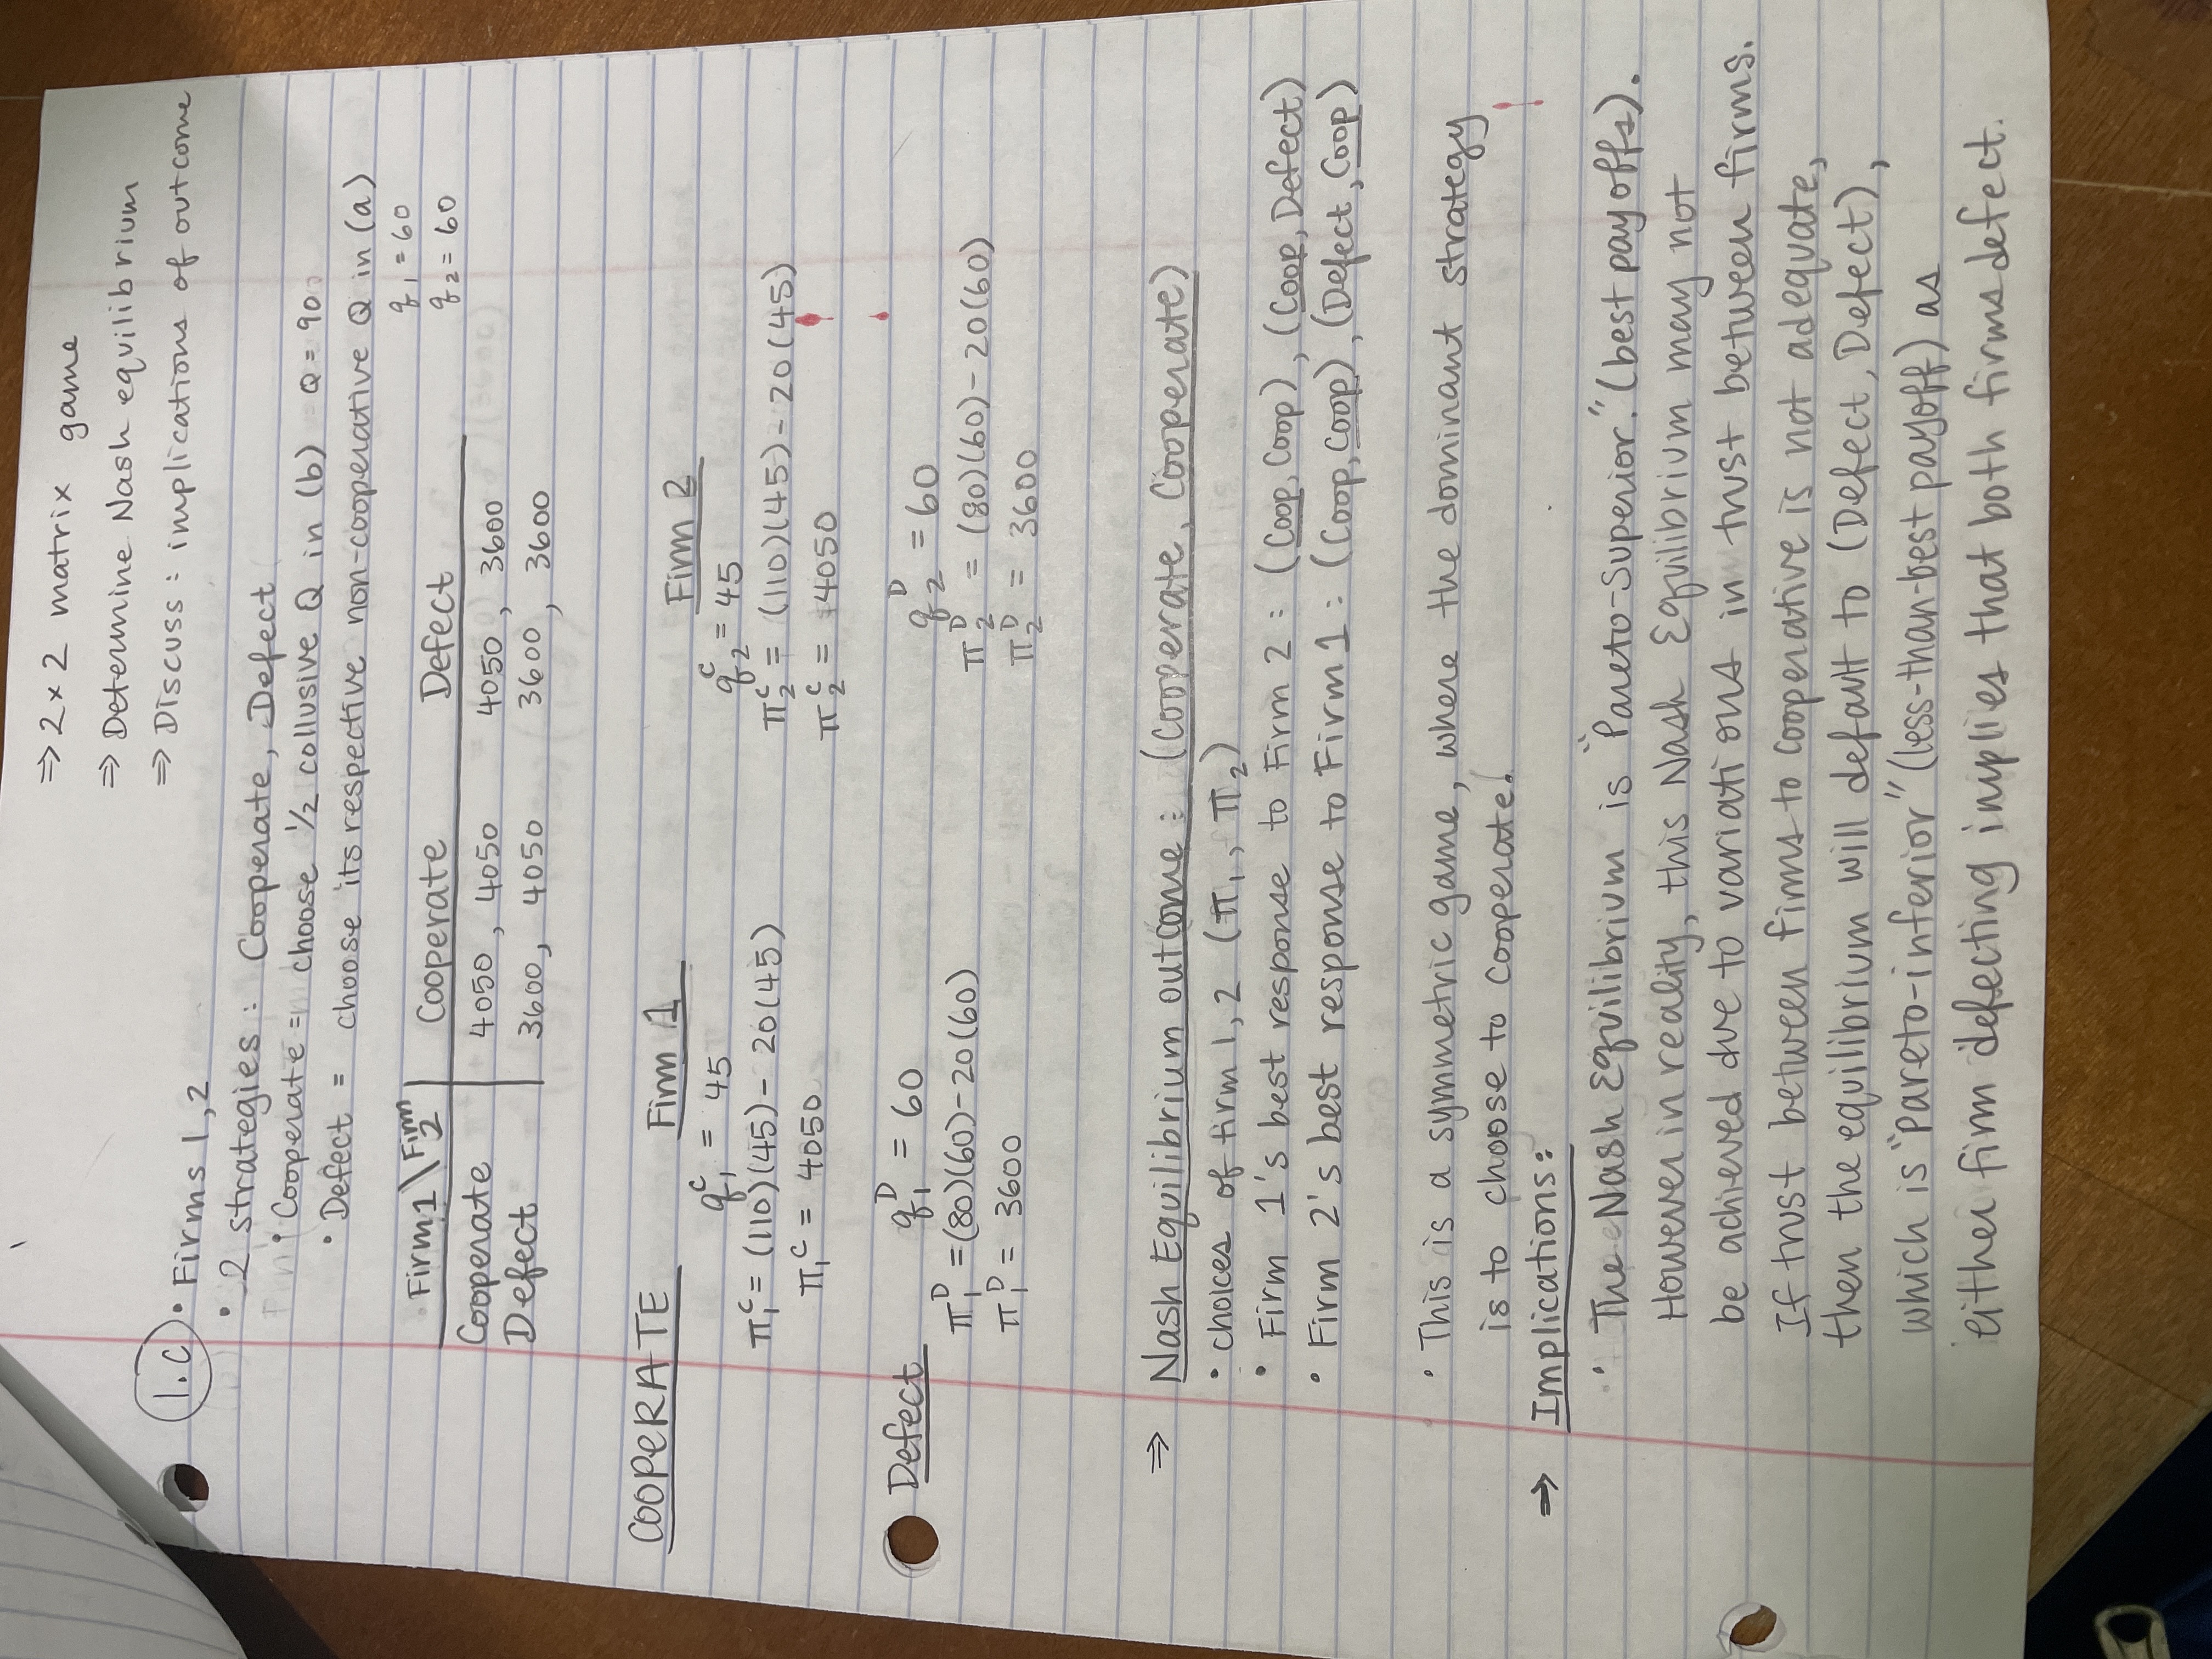 ⇒ 2 x 2 matrix game
⇒ Determine Nash equilibrium
⇒ Discuss: implications of outcome
1.c • Firms 1, 2
• 2 strategies: Cooperate, Defect
• Cooperate = choose 1/2 collusive Q in (b) Q = 90
• Defect = choose its respective non-cooperative Q in (a)
q₁ = 60
q₂ = 60
Firm 1 \ Firm 2 | Cooperate Defect
Cooperate 4050, 4050 4050, 3600
Defect 3600, 4050 3600, 3600
COOPERATE Firm 1 Firm 2
q₁ᶜ = 45 q₂ᶜ = 45
π₁ᶜ = (110)(45) - 20(45) π₂ᶜ = (110)(45) - 20(45)
π₁ᶜ = 4050 π₂ᶜ = 4050
Defect q₁ᴰ = 60 q₂ᴰ = 60
π₁ᴰ = (80)(60) - 20(60) π₂ᴰ = (80)(60) - 20(60)
π₁ᴰ = 3600 π₂ᴰ = 3600
⇒ Nash Equilibrium outcome: (Cooperate, Cooperate)
• choices of firm 1, 2 (π₁, π₂)
• Firm 1's best response to Firm 2: (Coop, Coop), (Coop, Defect)
• Firm 2's best response to Firm 1: (Coop, Coop), (Defect, Coop)
• This is a symmetric game, where the dominant strategy
is to choose to cooperate.
⇒ Implications:
• The Nash Equilibrium is "Pareto-Superior." (best payoffs).
However in reality, this Nash Equilibrium may not
be achieved due to variations in trust between firms.
If trust between firms to cooperative is not adequate,
then the equilibrium will default to (Defect, Defect),
which is "pareto-inferior" (less-than-best payoff) as
either firm defecting implies that both firms defect.